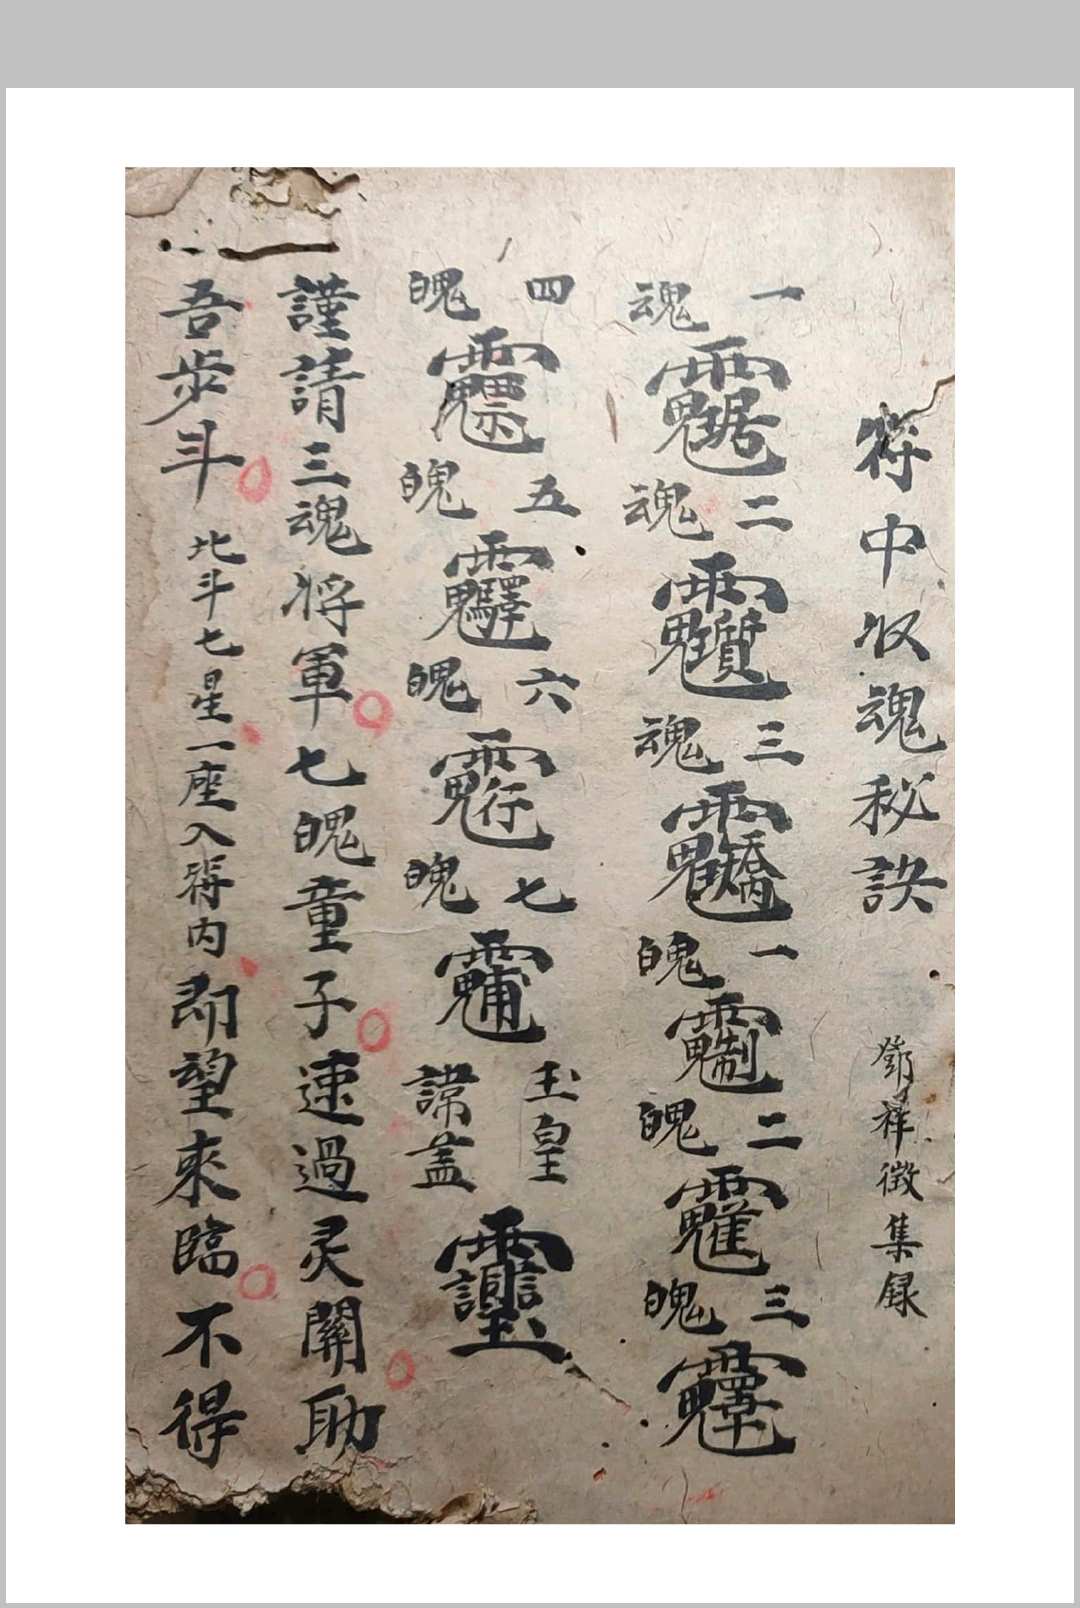 符中収魂秘訣 鄧祥徵集録
一魂 二魂 三魂 一魄 二魄 三魄
四魄 五魄 六魄 七魄 玉皇諱盖
謹請三魂将軍七魄童子速過灵關助
吾步斗北斗七星一座入符内即望來臨不得